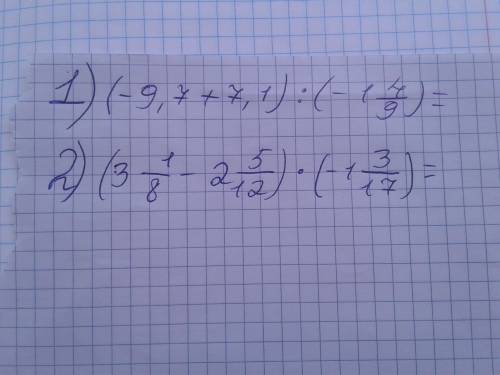 1) (-9,7+7,1):(-1 4/9)=
2) (3 1/8 - 2 5/12)·(-1 3/17)=